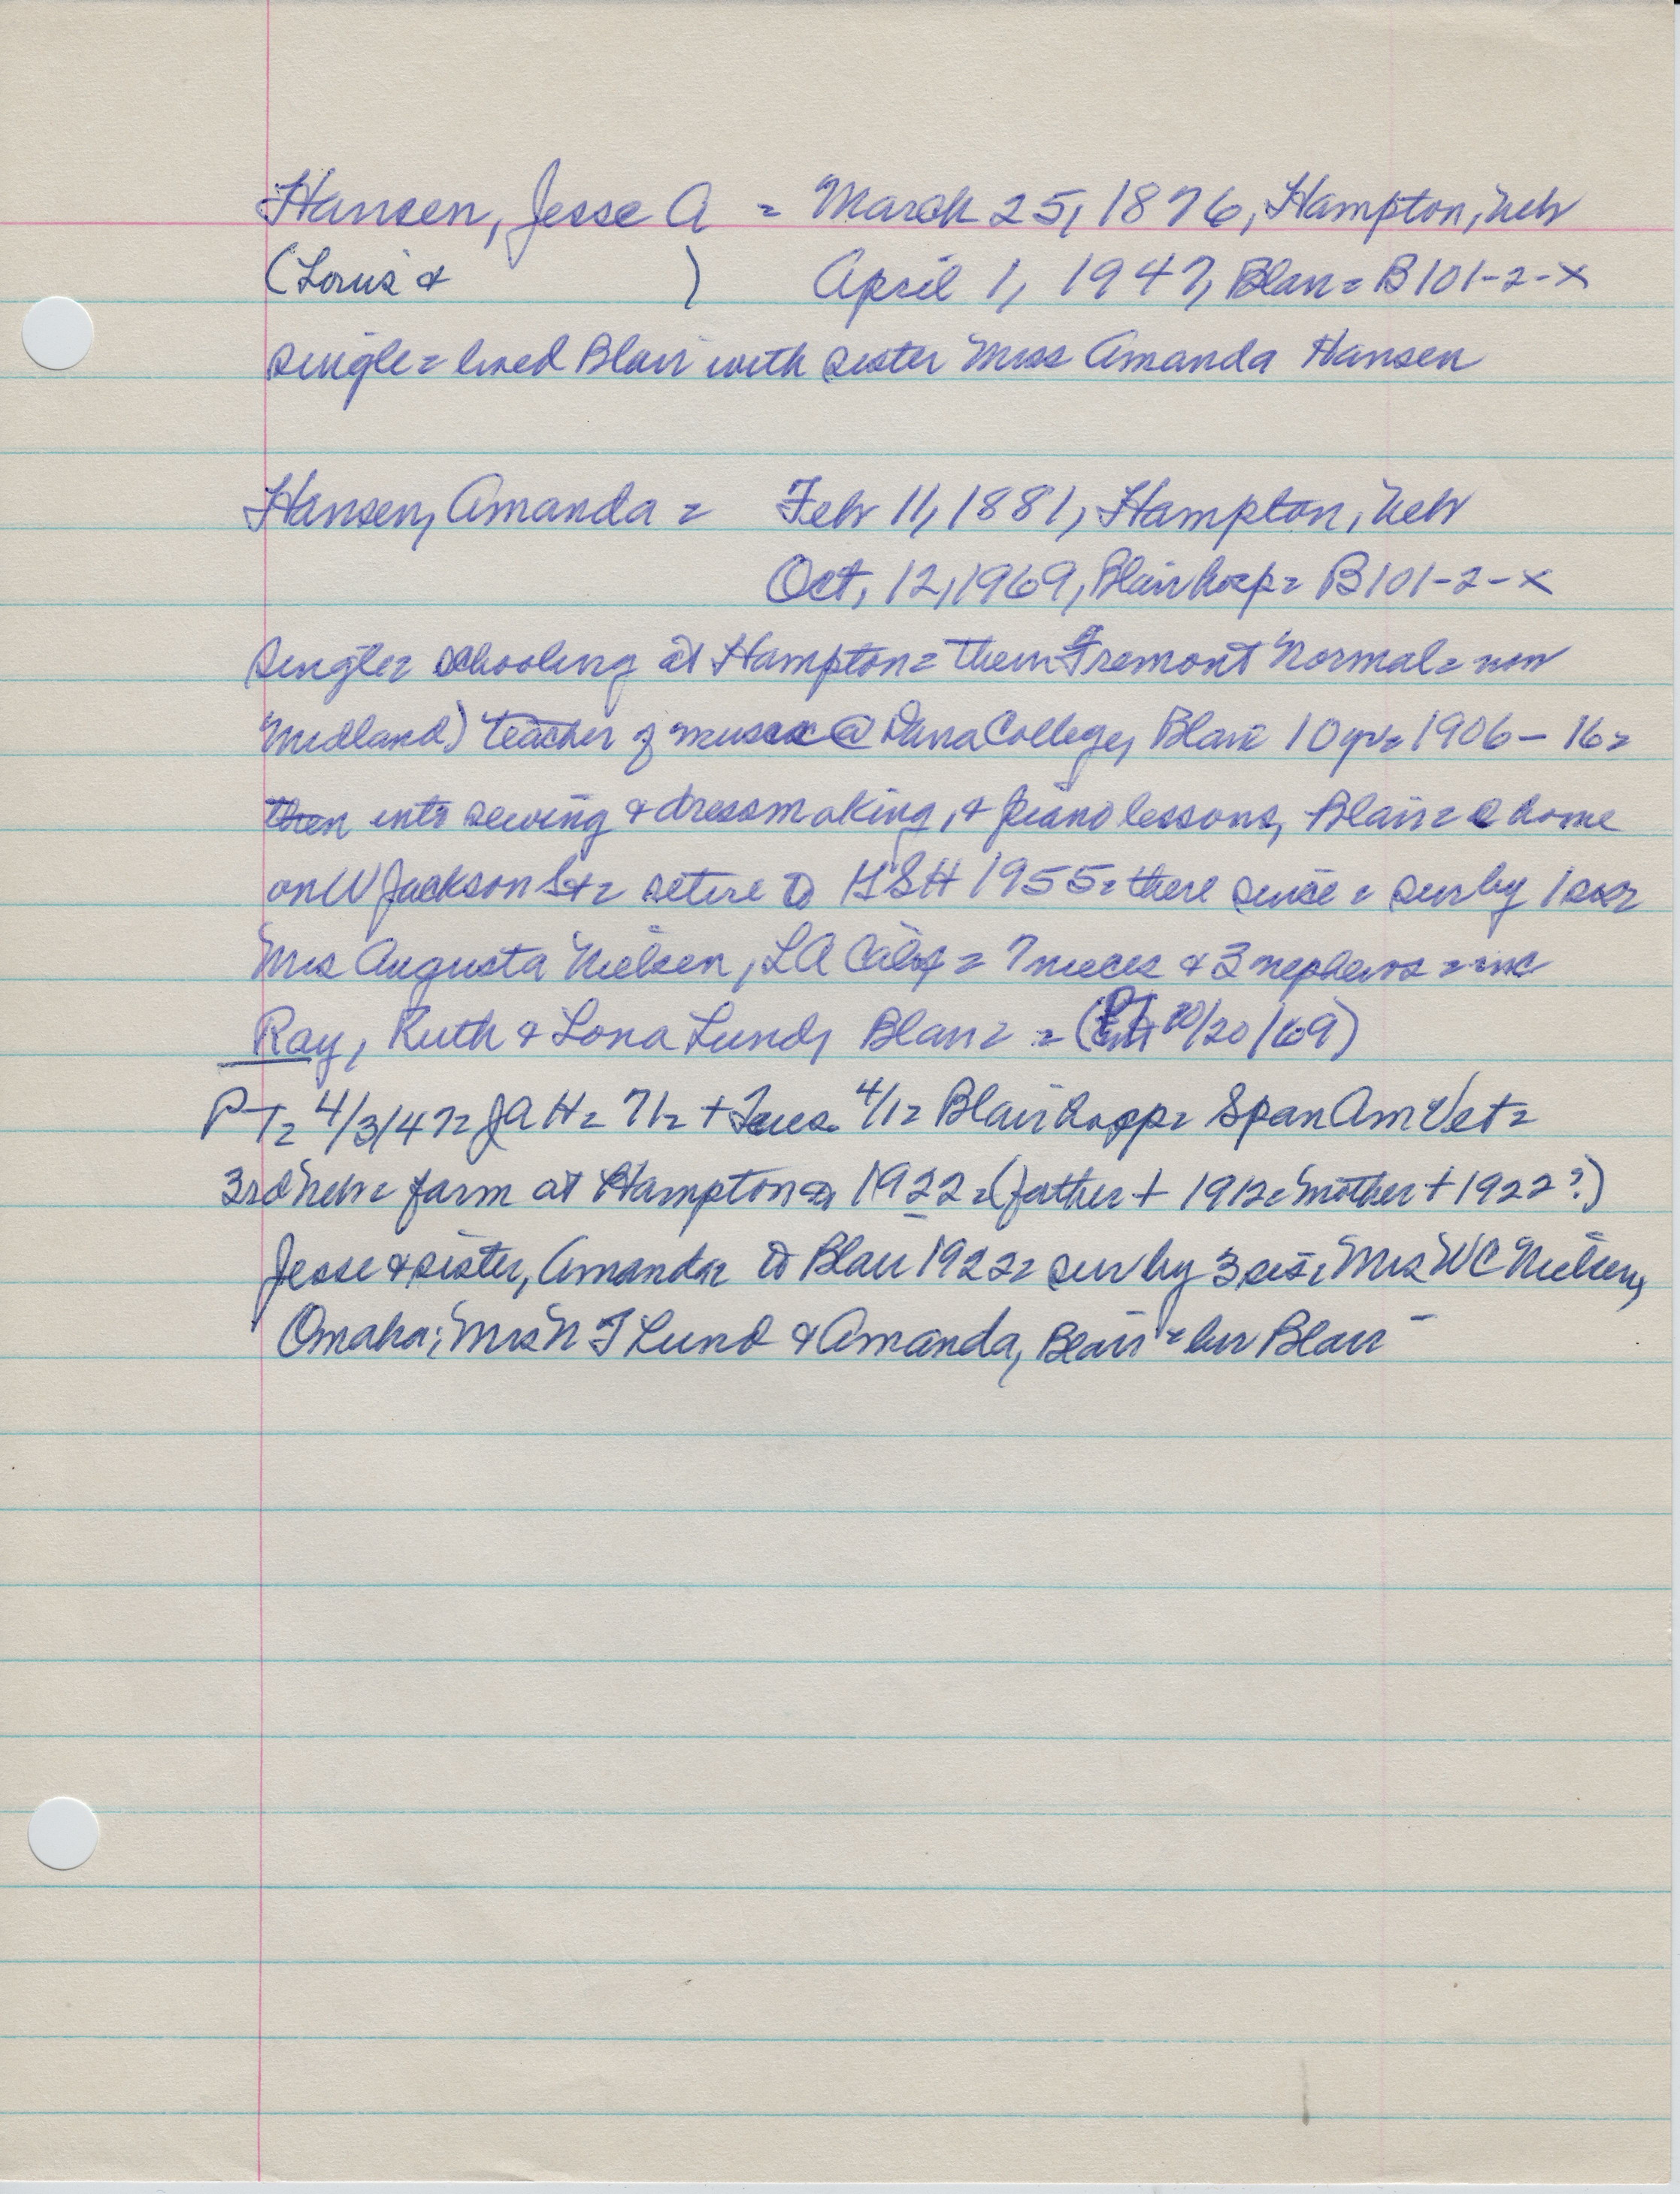 Hansen, Jesse A = March 25, 1876, Hampton, Neb
(Louis & ) April 1, 1947, Blair = B101-2-x
single = lived Blair with sister Miss Amanda Hansen
Hansen, Amanda = Feb 11, 1881, Hampton, Neb
Oct, 12, 1969, Blair hosp = B101-2-x
single = schooling at Hampton = then Fremont Normal = now
Midland) teacher of music @ Dana College, Blair 10 yr = 1906-16 =
then into sewing & dressmaking, & piano lessons, Blair = @ home
on W Jackson St = retire to GSH 1955 = there since = sur by 1 sis =
Mrs Augusta Nielsen, LA Calif = 7 nieces & 3 nephews = inc
Ray, Ruth & Lona Lund, Blair = = ( /20/69)
PT = 4/3/47 = JAH = 71 = + Tues. 4/1 = Blair hosp = Span Am Vet =
3rd Neb = farm at Hampton 1922 = (father + 1912 = mother + 1922?)
Jesse & sister, Amanda = to Blair 1922 = sur by 3 sis = Mrs WC Nielsen,
Omaha; Mrs N T Lund & Amanda, Blair = bur Blair -